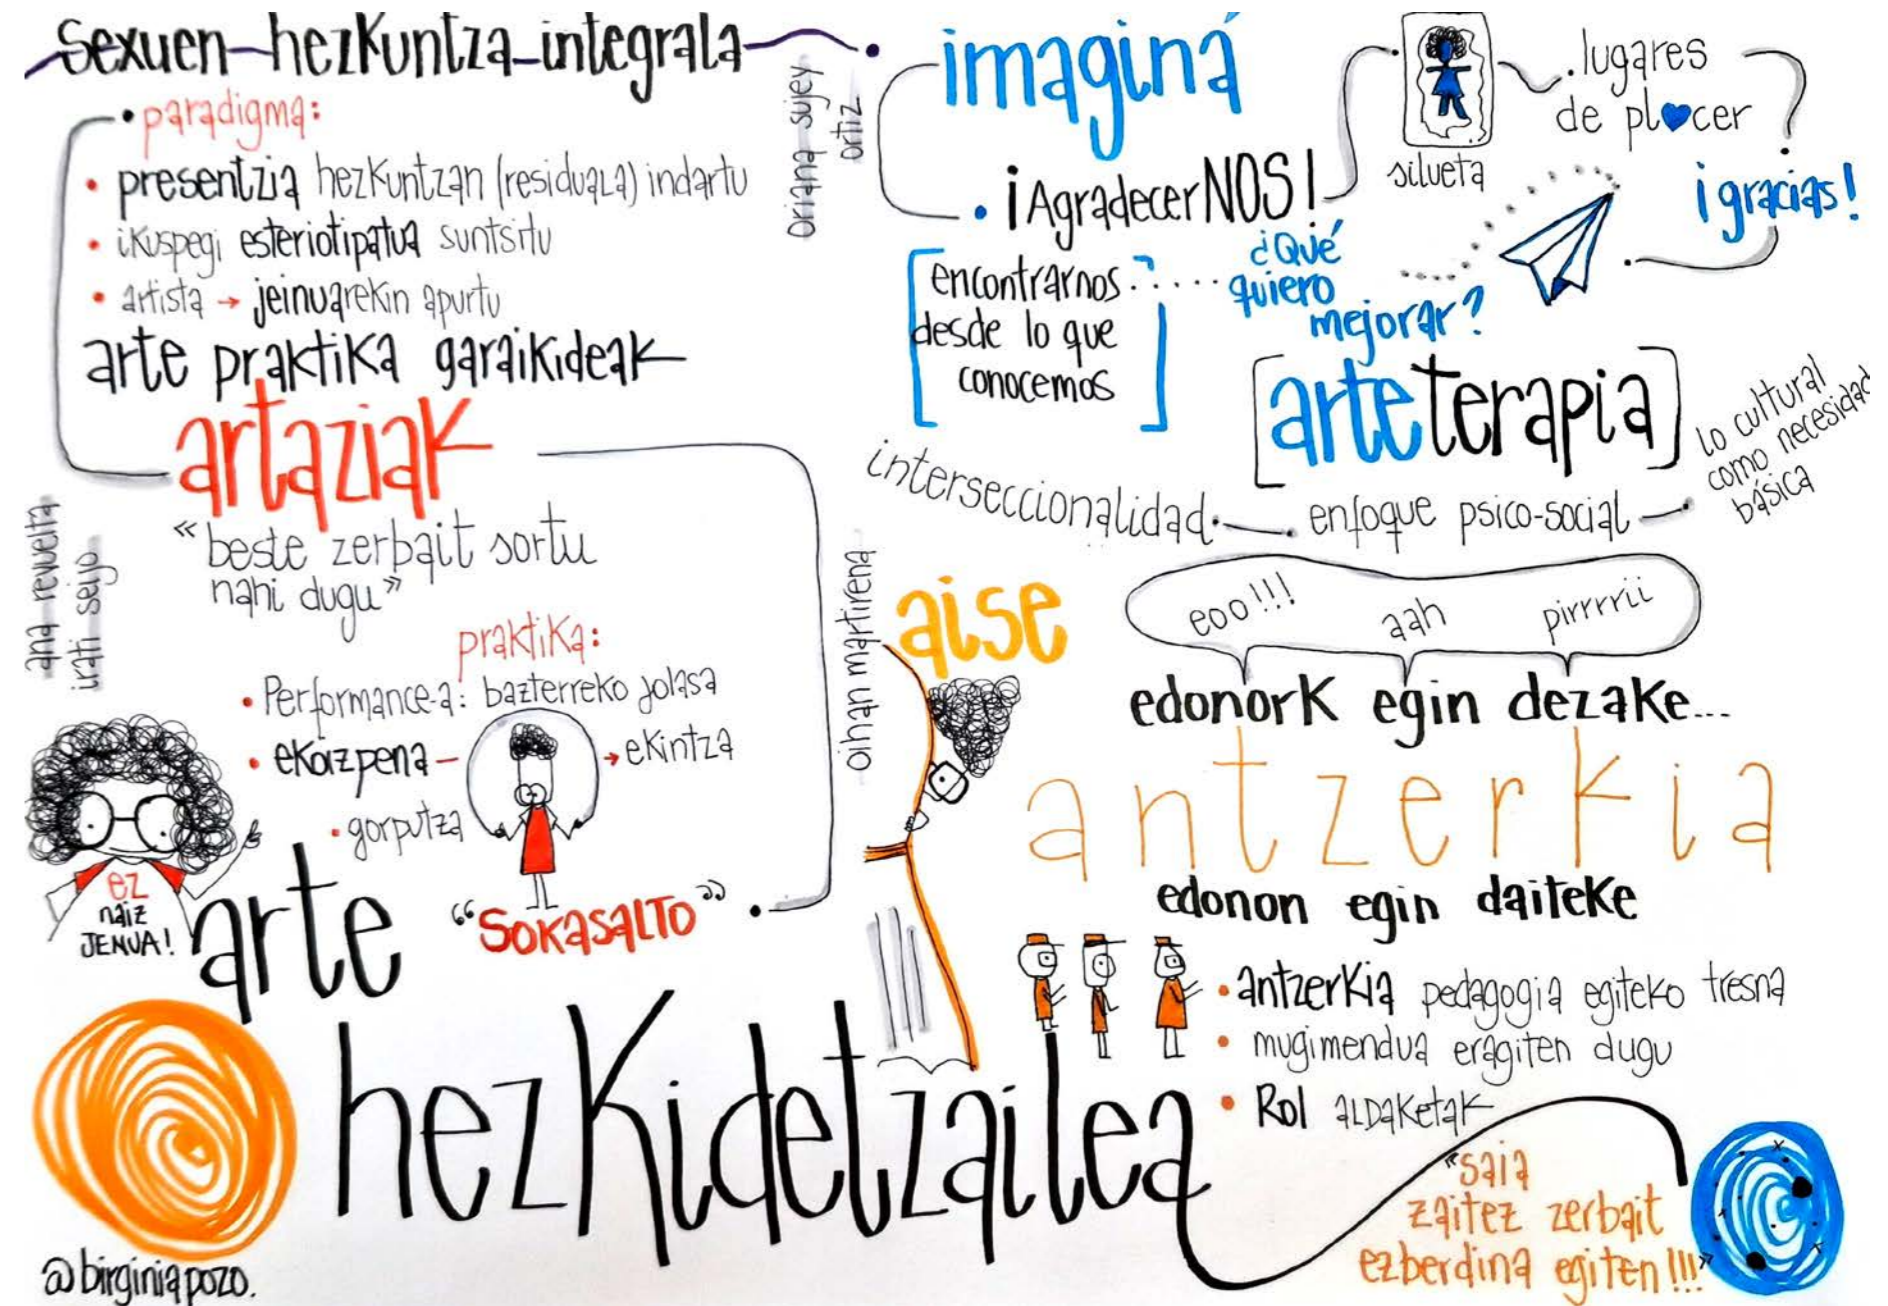 sexuen hezkuntza integrala
• paradigma:
• presentzia hezkuntzan (residuala) indartu
• ikuspegi esteriotipatua suntsitu
• artista → jeinuarekin apurtu
arte praktika garaikideak
artaziak
ana revuelta
irati seijo
«beste zerbait sortu
nahi dugu»
praktika:
• Performance-a: bazterreko jolasa
• ekoizpena – → ekintza
• gorputza
"SOKASALTO"
ez
naiz
JENUA!
oriana sujey
ortiz
imaginá
• ¡AgradecerNOS!
silueta
. lugares
de placer
¡gracias!
[encontrarnos
desde lo que
conocemos]
¿Qué
quiero
mejorar?
[arteterapia]
interseccionalidad
enfoque psico-social
lo cultural
como necesidad
básica
oihan martirena
aise
eoo!!! aah pirrrrii
edonork egin dezake...
antzerkia
edonon egin daiteke
• antzerkia pedagogia egiteko tresna
• mugimendua eragiten dugu
• Rol aldaketak
"saia
zaitez zerbait
ezberdina egiten!!!"
arte
hezkidetzailea
@birginiapozo.